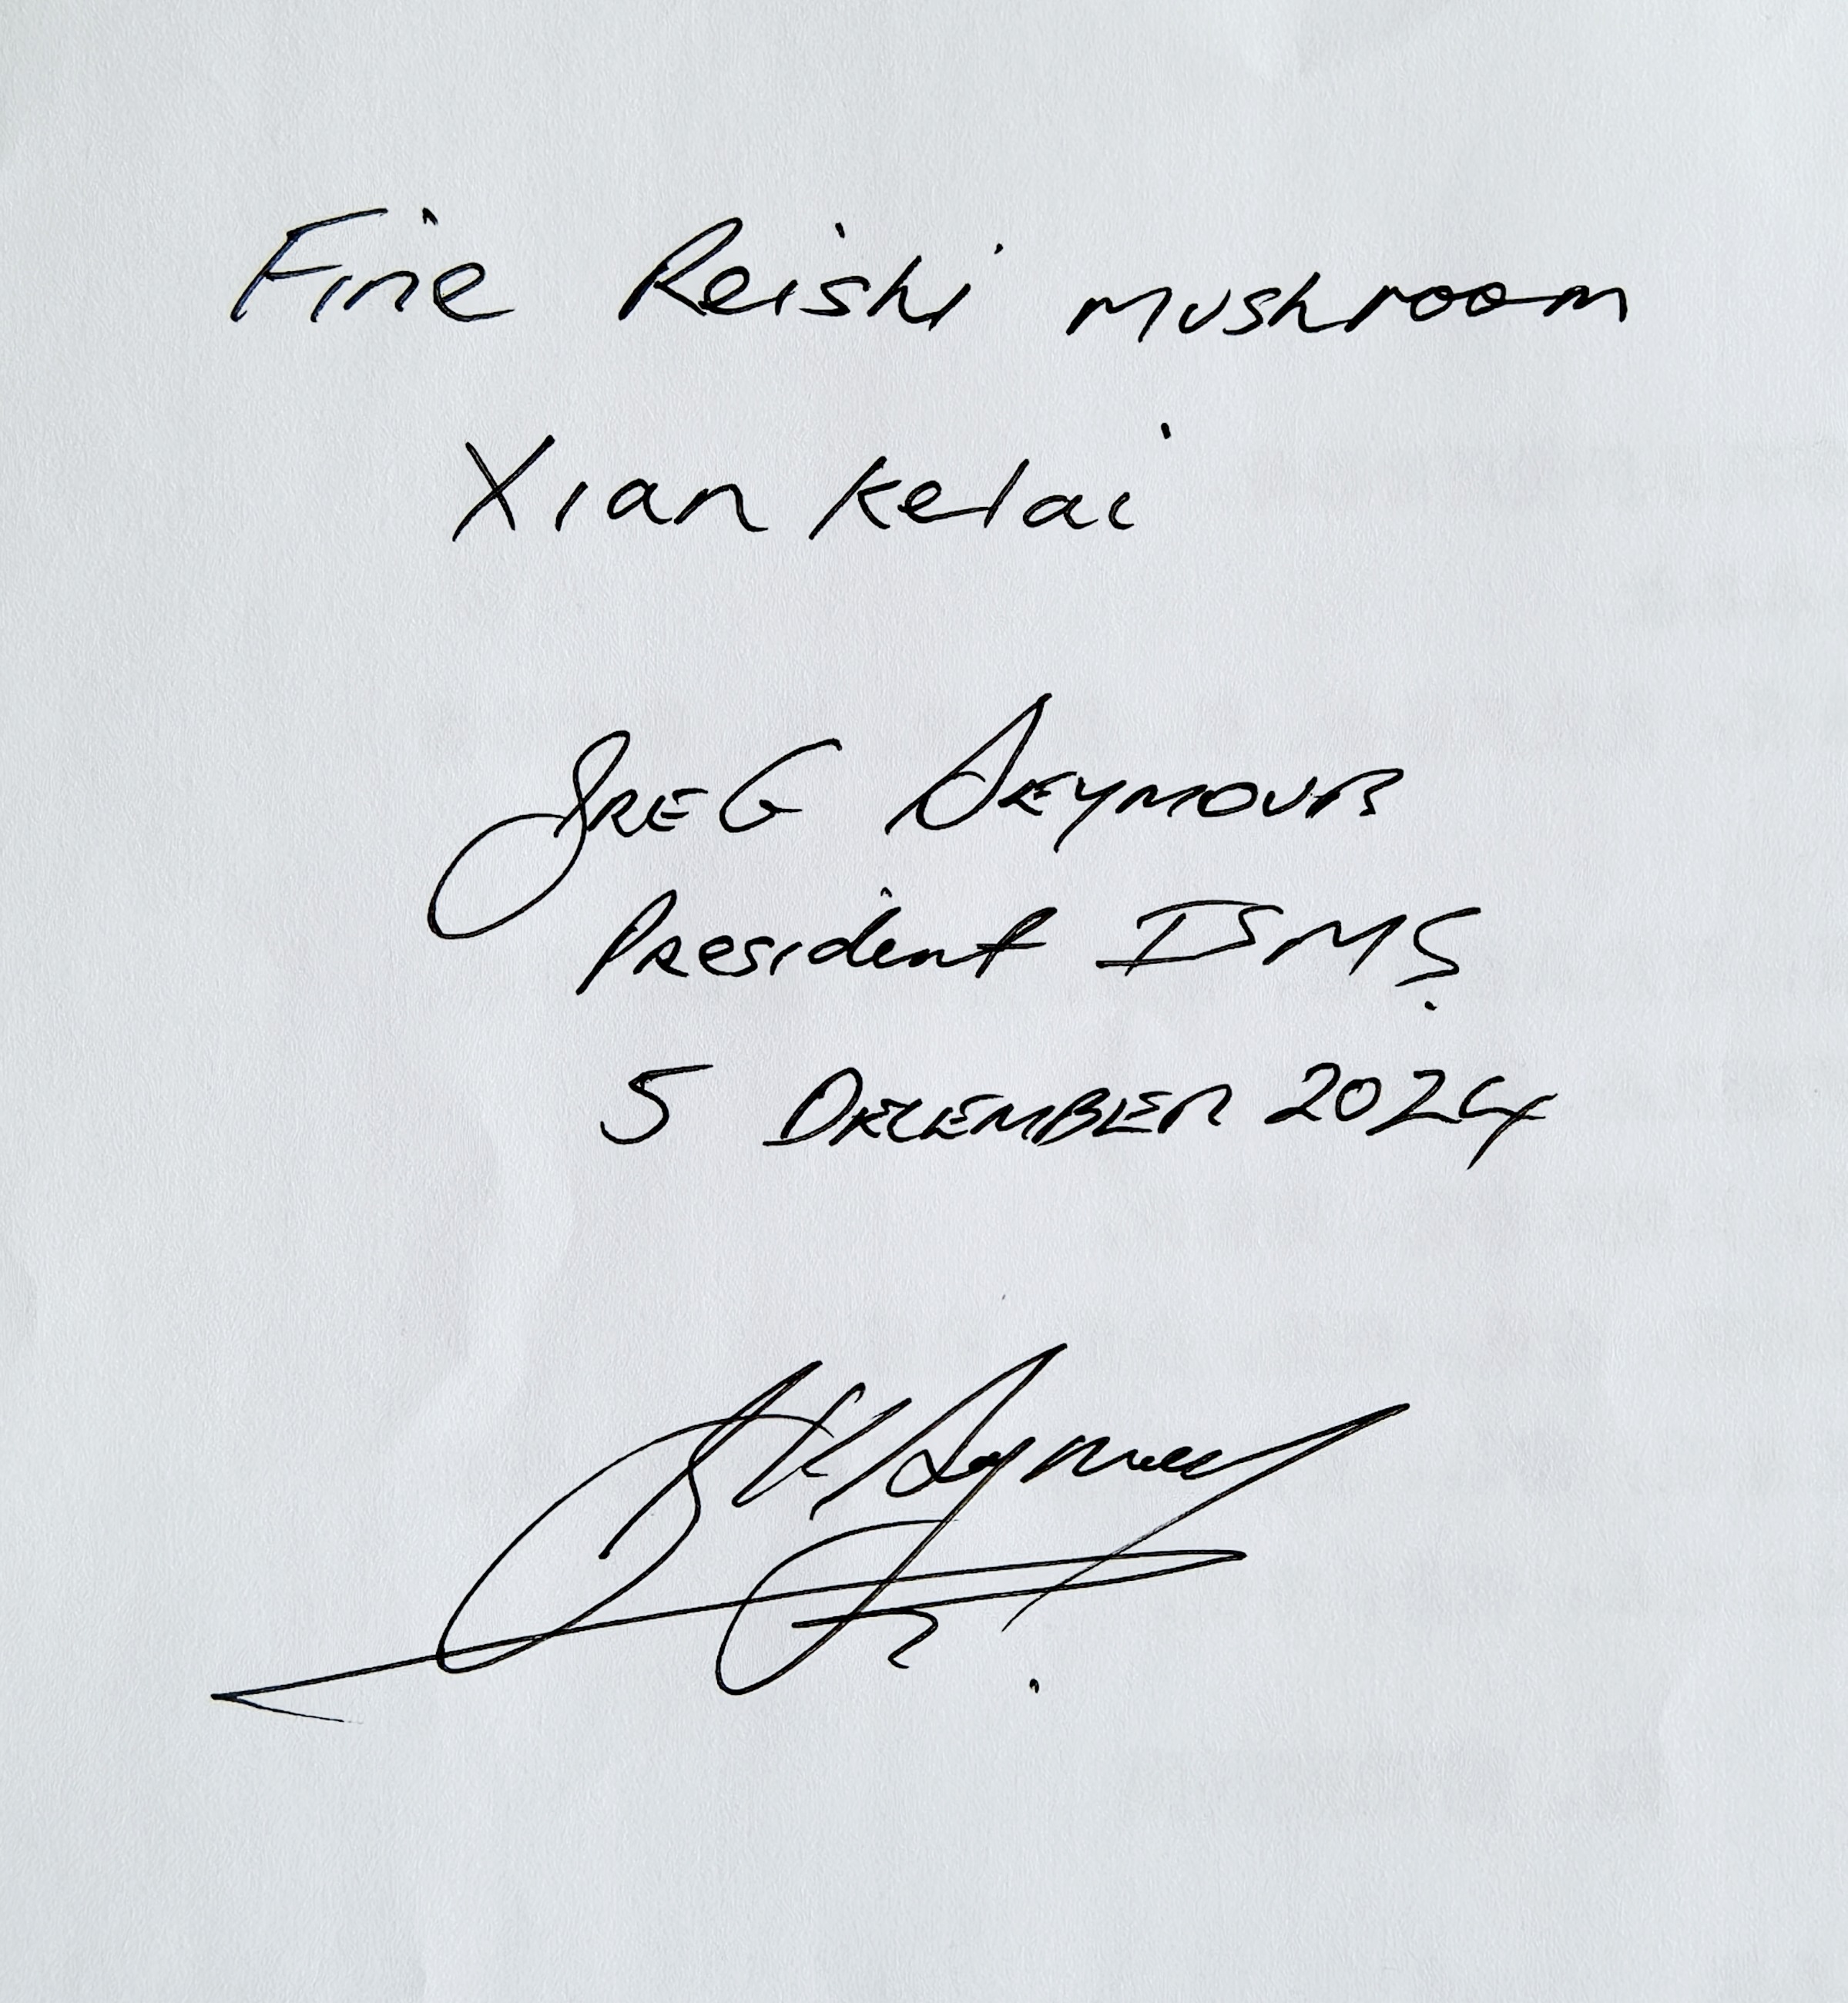 Fine Reishi mushroom
Xian Kelai
GREG SEYMOUR
President ISMS.
5 DECEMBER 2024